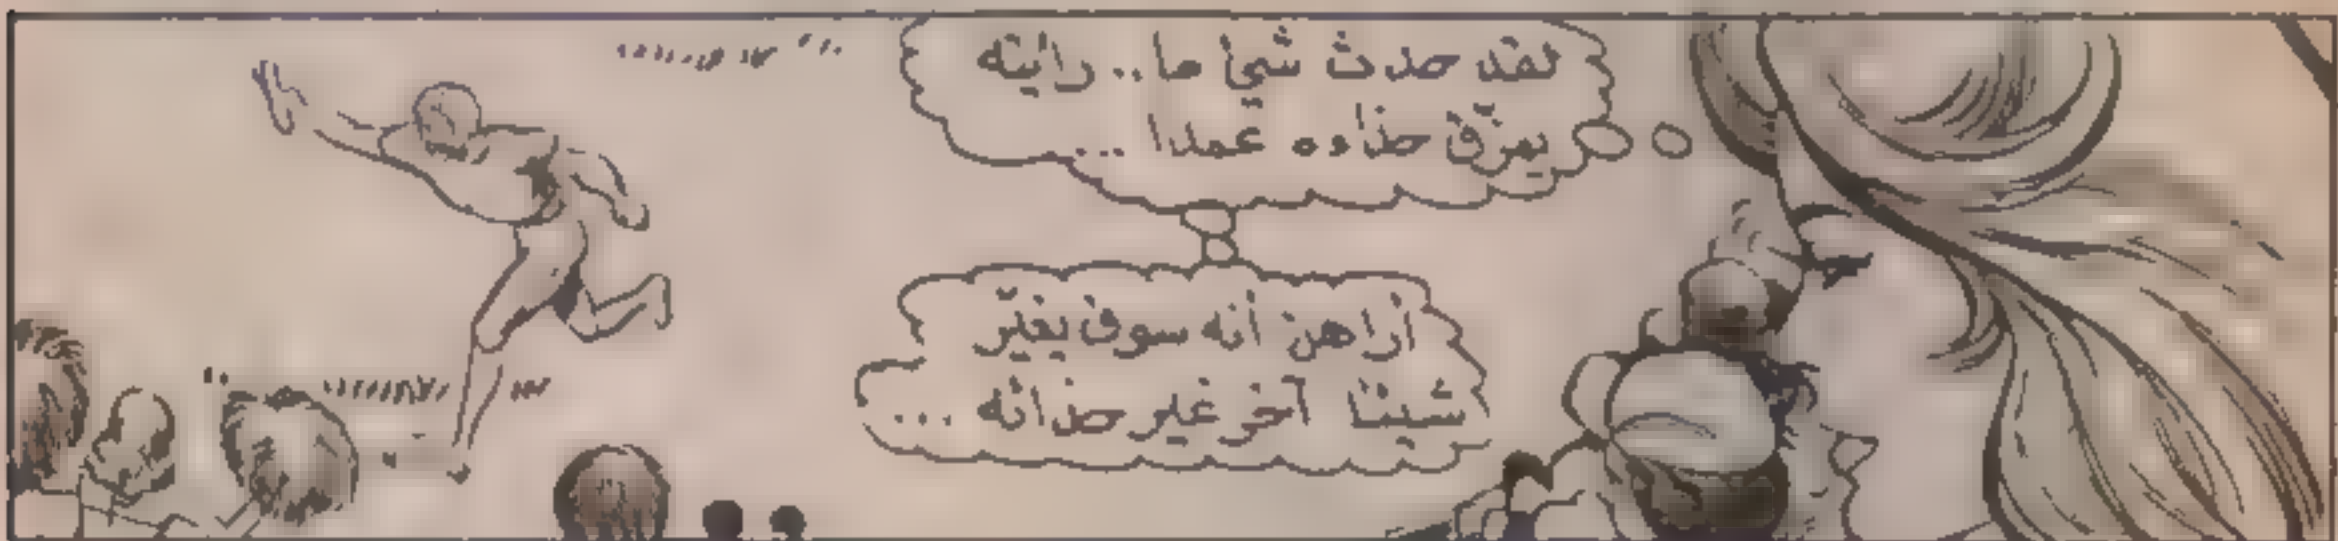 لقد حدث شيئ ما.. رأيته
يمزّق حذاءه عمدا ...
أراهن أنه سوف يغيّر
شيئا آخر غير حذائه ...